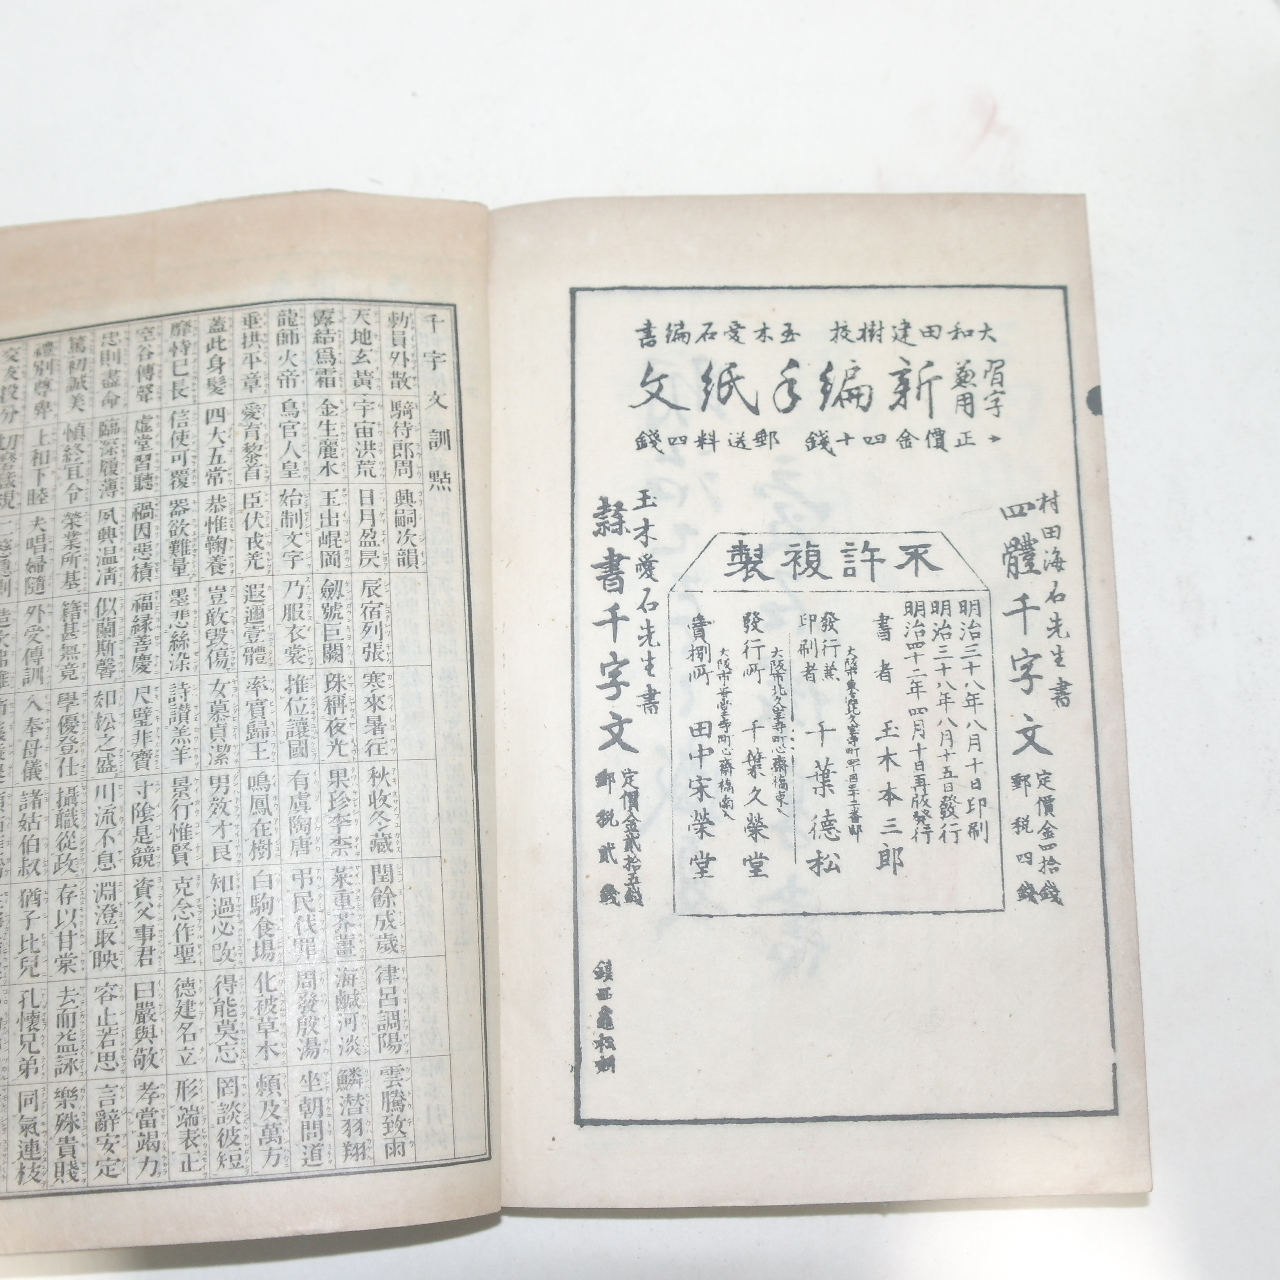 大和田建樹校　玉木愛石編書
習字兼用
新編手紙文
正價金四十錢　郵送料四錢
村田海石先生書
四體千字文
定價金四拾錢
郵税四錢
不許複製
明治三十八年八月十日印刷
明治三十八年八月十五日發行
明治四十二年四月十日再版發行
書者　玉木本三郎
發行兼印刷者　千葉德松
發行所　千葉久榮堂
賣捌所　田中宋榮堂
玉木愛石先生書
隷書千字文
定價金貳拾五錢
郵税貳錢
千字文訓點
勅員外散　騎待郎周　興嗣次韻
天地玄黃　宇宙洪荒　日月盈昃　辰宿列張　寒來暑往　秋收冬藏　閏餘成歲　律呂調陽　雲騰致雨
露結爲霜　金生麗水　玉出崐岡　劔號巨闕　珠稱夜光　果珍李柰　菜重芥薑　海鹹河淡　鱗潛羽翔
龍師火帝　鳥官人皇　始制文字　乃服衣裳　推位讓國　有虞陶唐　弔民伐罪　周發殷湯　坐朝問道
垂拱平章　愛育黎首　臣伏戎羌　遐邇壹體　率賓歸王　鳴鳳在樹　白駒食場　化被草木　賴及萬方
蓋此身髮　四大五常　恭惟鞠養　豈敢毀傷　女慕貞潔　男效才良　知過必改　得能莫忘　罔談彼短
靡恃己長　信使可覆　器欲難量　墨悲絲染　詩讃羔羊　景行惟賢　克念作聖　德建名立　形端表正
空谷傳聲　虛堂習聽　禍因惡積　福緣善慶　尺璧非寶　寸陰是競　資父事君　曰嚴與敬　孝當竭力
忠則盡命　臨深履薄　夙興溫凊　似蘭斯馨　如松之盛　川流不息　淵澄取映　容止若思　言辭安定
篤初誠美　愼終宜令　榮業所基　籍甚無竟　學優登仕　攝職從政　存以甘棠　去而益詠　樂殊貴賤
禮別尊卑　上和下睦　夫唱婦隨　外受傅訓　入奉母儀　諸姑伯叔　猶子比兒　孔懷兄弟　同氣連枝
交友投分